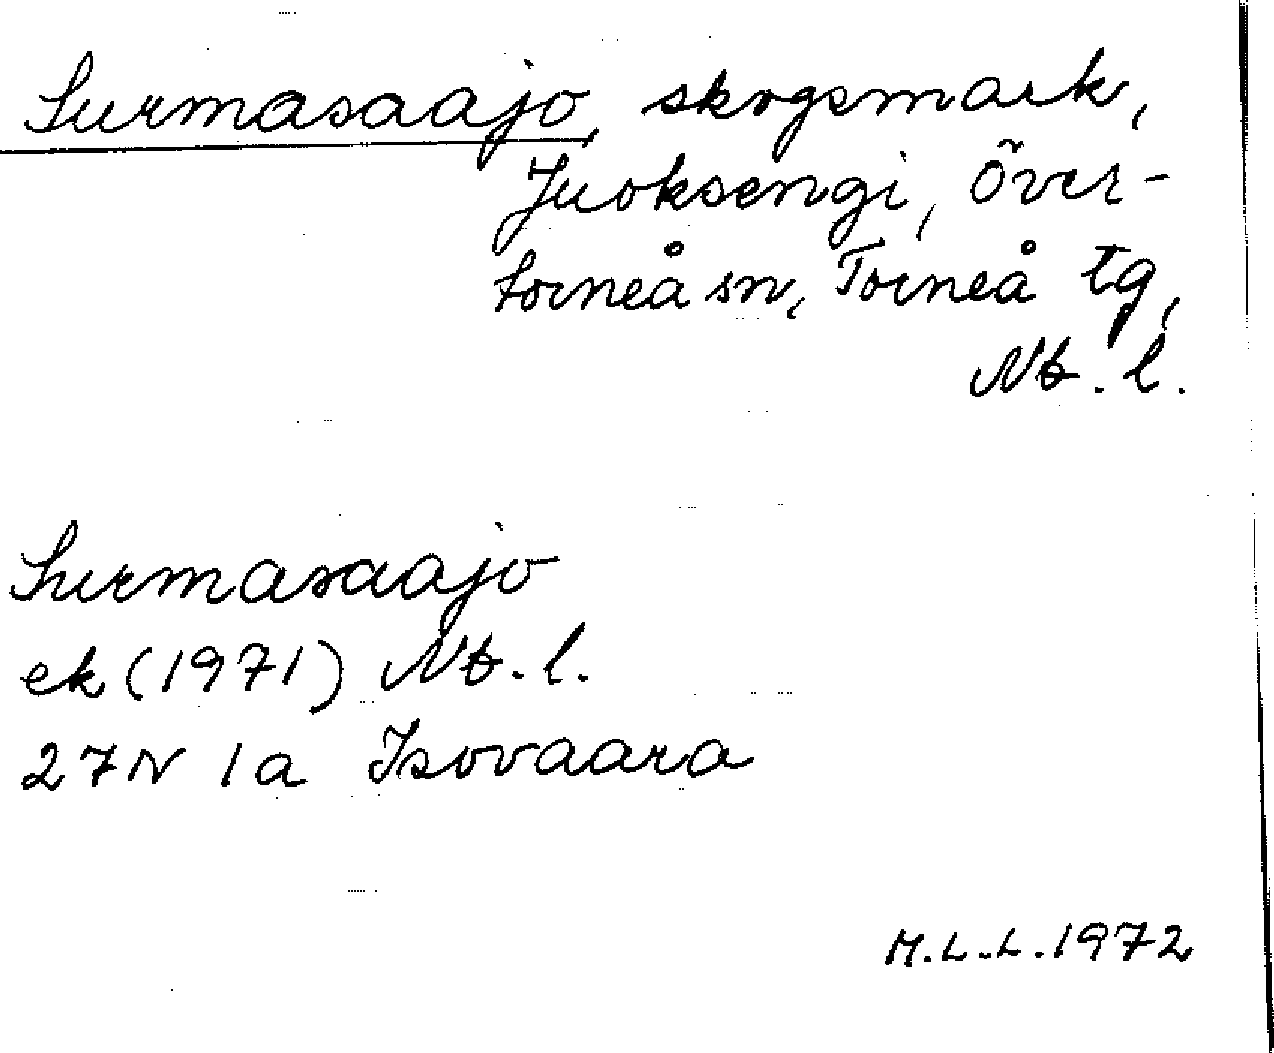 Surmasaajo, skogsmark,
Juoksengi, Över-
torneå sn, Torneå tg,
Nb. l.
Surmasaajo
ek (1971) Nb. l.
27N 1a Isovaara
M.L.L. 1972